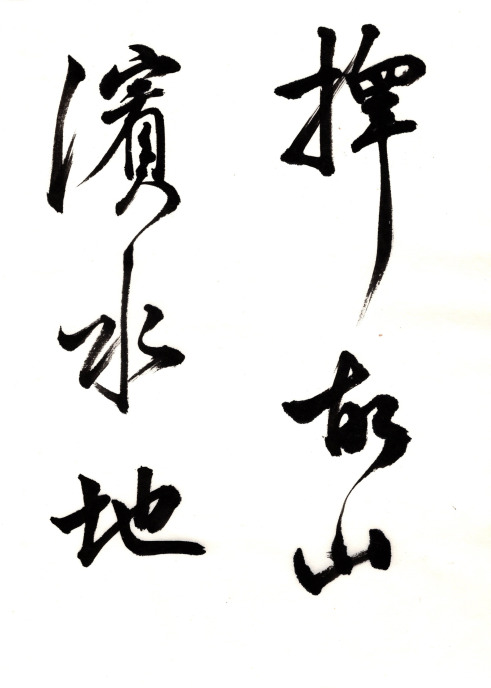 擇故山
濱水地